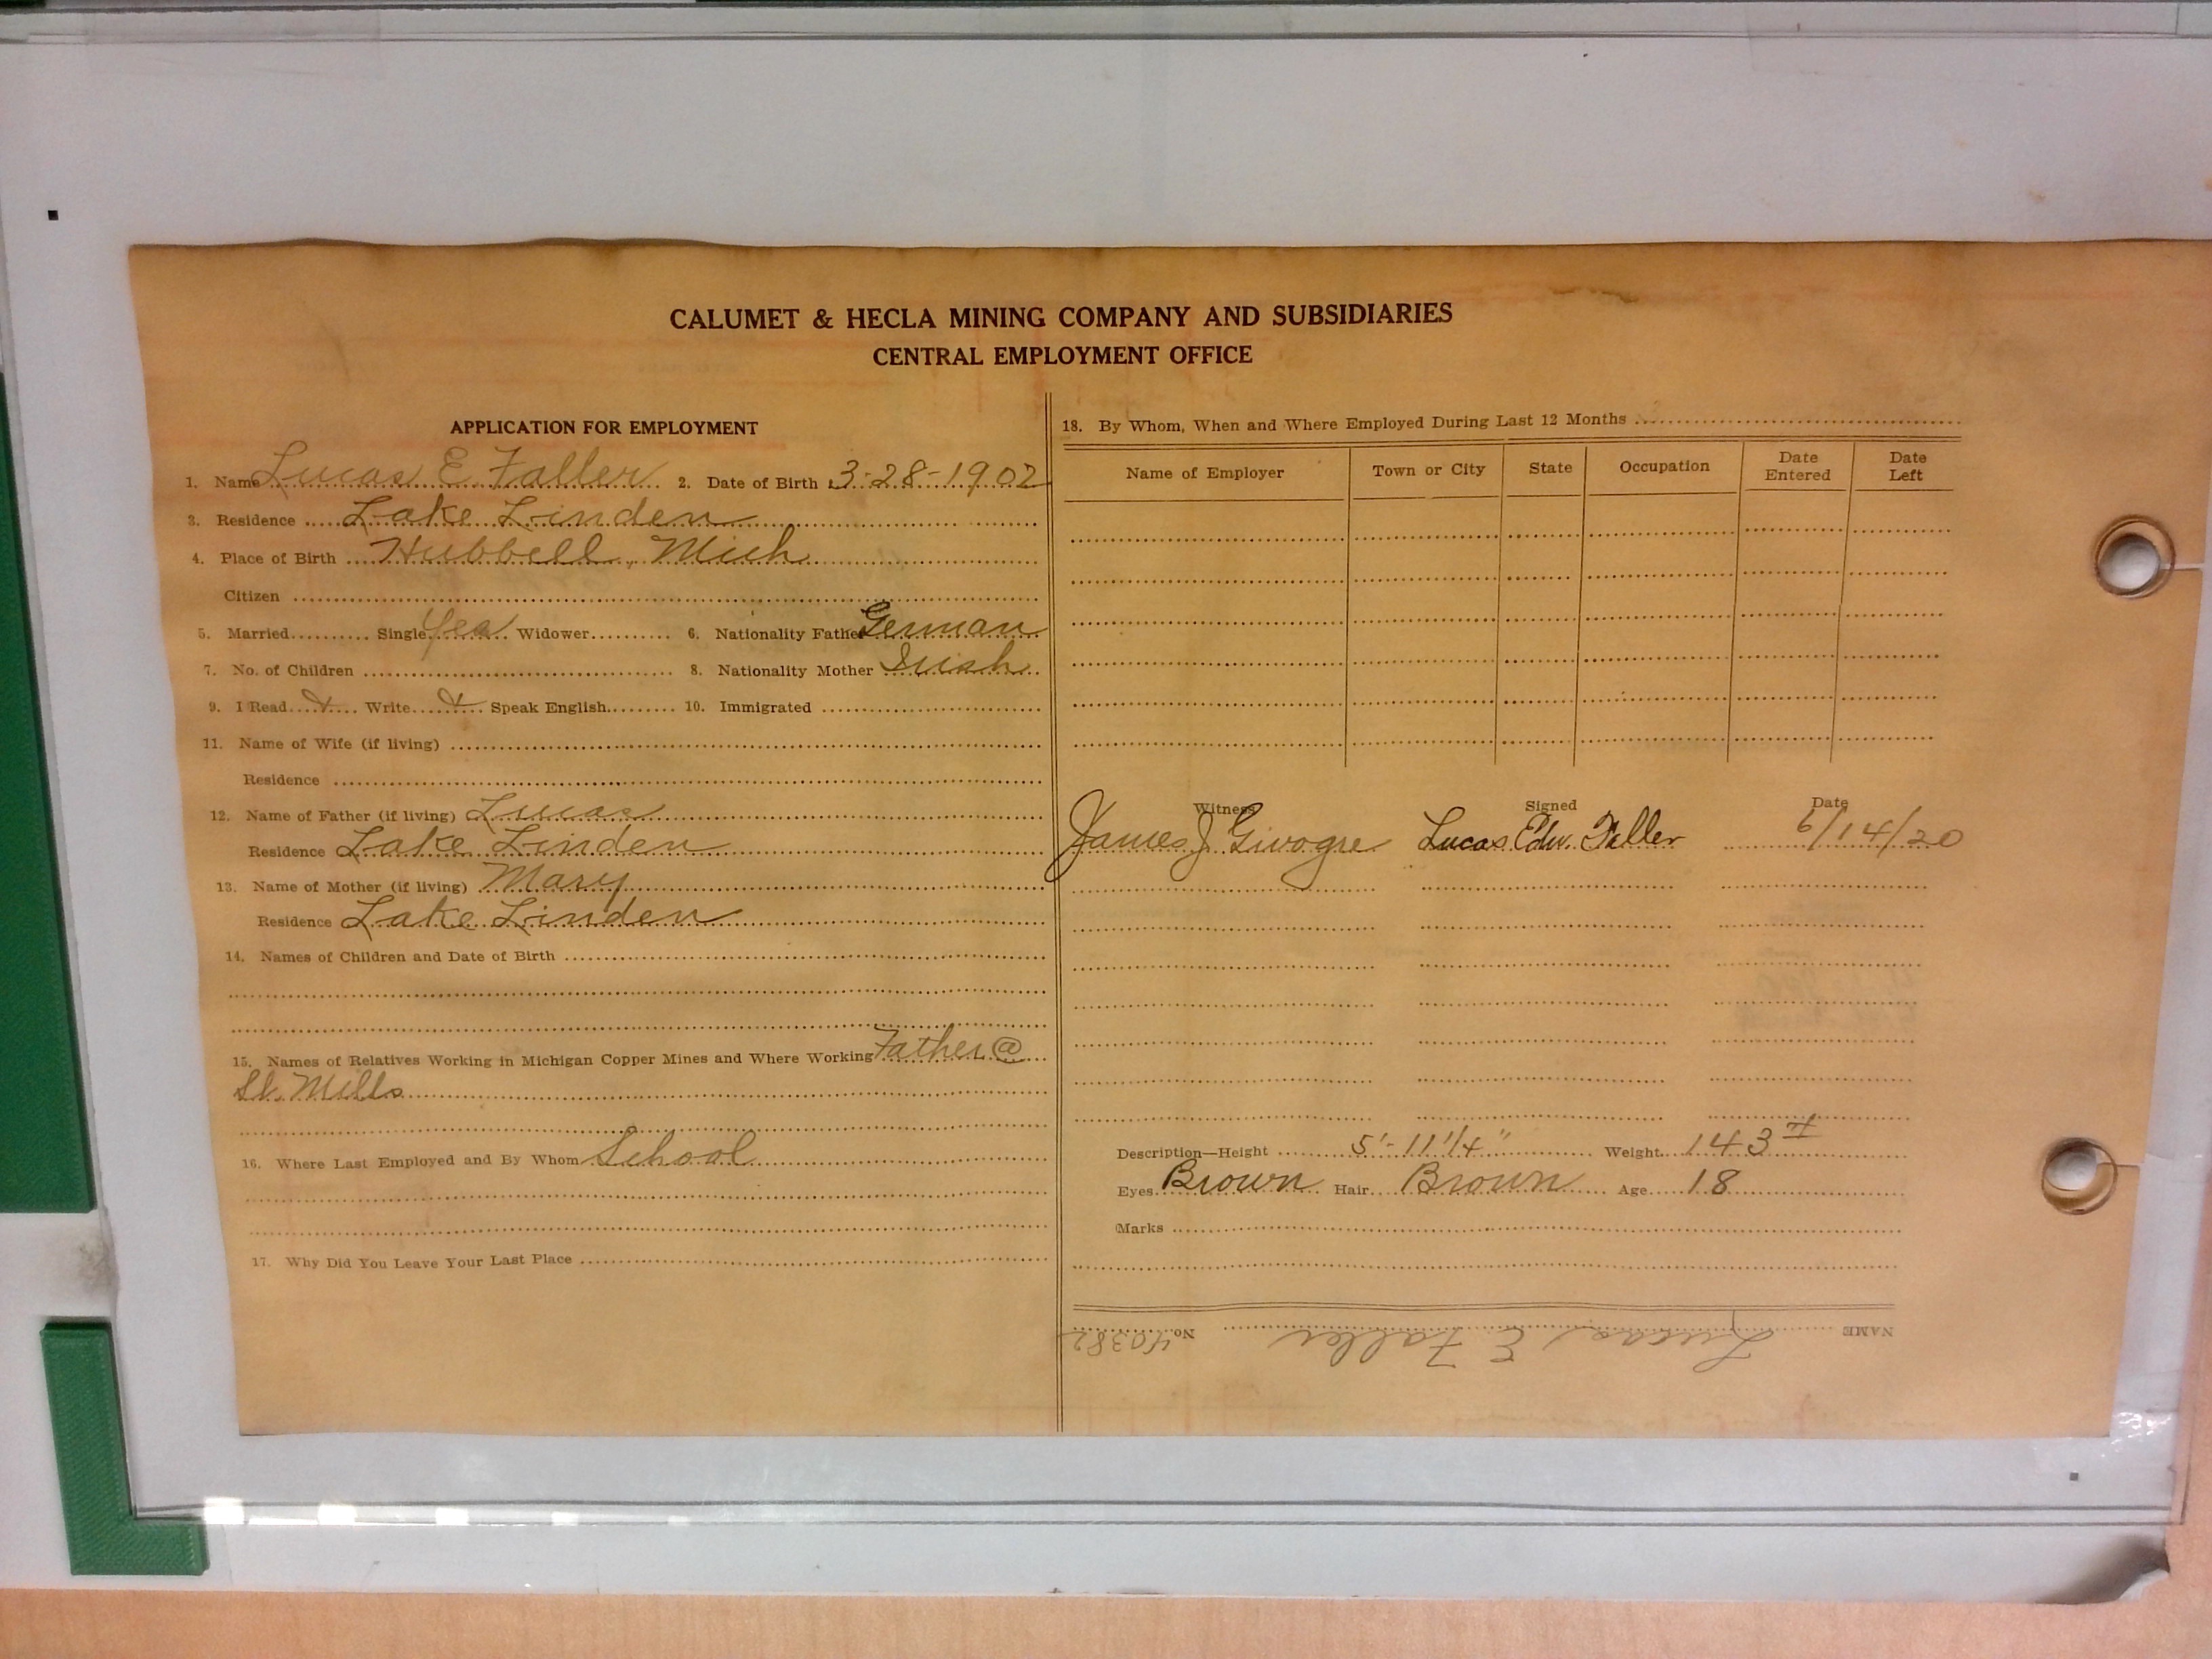 CALUMET & HECLA MINING COMPANY AND SUBSIDIARIES
CENTRAL EMPLOYMENT OFFICE
APPLICATION FOR EMPLOYMENT
1. Name Lucas E. Faller 2. Date of Birth 3-28-1902
3. Residence Lake Linden
4. Place of Birth Hubbell, Mich
Citizen
5. Married Single Yes Widower 6. Nationality Father German
7. No. of Children 8. Nationality Mother Irish
9. I Read X Write X Speak English 10. Immigrated
11. Name of Wife (if living)
Residence
12. Name of Father (if living) Lucas
Residence Lake Linden
13. Name of Mother (if living) Mary
Residence Lake Linden
14. Names of Children and Date of Birth
15. Names of Relatives Working in Michigan Copper Mines and Where Working Father @
St. Mills
16. Where Last Employed and By Whom School
17. Why Did You Leave Your Last Place
18. By Whom, When and Where Employed During Last 12 Months
Name of Employer Town or City State Occupation Date Entered Date Left
Witness Signed Date
James J. Givogre Lucas Edw. Faller 6/14/20
Description—Height 5'-11 1/4" Weight 143 #
Eyes Brown Hair Brown Age 18
Marks
NAME Lucas E. Faller No. 40382